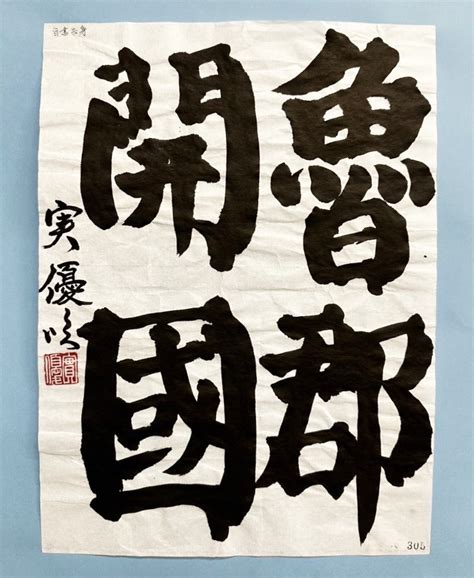 魯郡
開國
実優
305